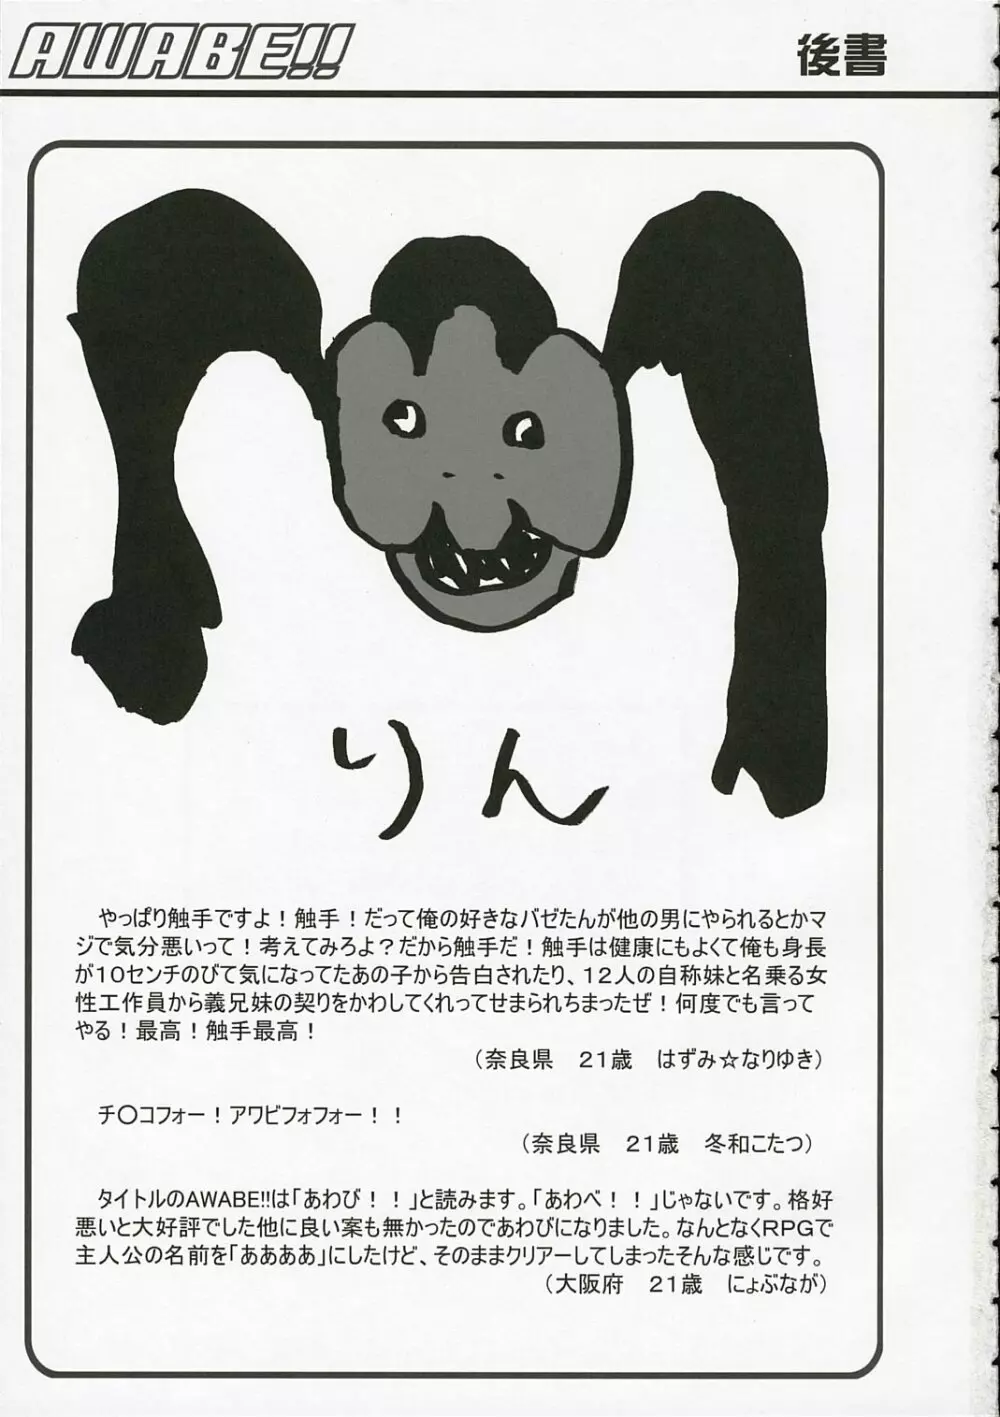 AWABE!!
後書
りん
やっぱり触手ですよ！触手！だって俺の好きなバゼたんが他の男にやられるとかマ
ジで気分悪いって！考えてみろよ？だから触手だ！触手は健康にもよくて俺も身長
が１０センチのびて気になってたあの子から告白されたり、１２人の自称妹と名乗る女
性工作員から義兄妹の契りをかわしてくれってせまられちまったぜ！何度でも言って
やる！最高！触手最高！
（奈良県　２１歳　はずみ☆なりゆき）
チ〇コフォー！アワビフォフォー！！
（奈良県　２１歳　冬和こたつ）
タイトルのAWABE!!は「あわび！！」と読みます。「あわべ！！」じゃないです。格好
悪いと大好評でした他に良い案も無かったのであわびになりました。なんとなくＲＰＧで
主人公の名前を「ああああ」にしたけど、そのままクリアーしてしまったそんな感じです。
（大阪府　２１歳　にょぶなが）